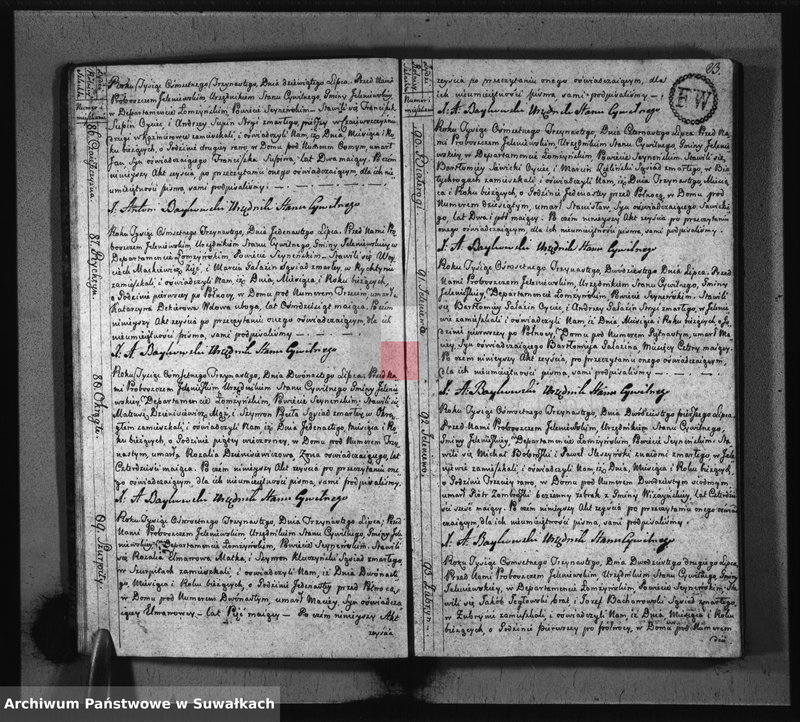 Roku Tysiąc Ośmsetnego Trzynastego, Dnia dziewiątego Lipca. Przed Nami
Proboszczem Jeleniewskim, Urzędnikiem Stanu Cywilnego, Gminy Jeleniewskiej
w Departamencie Łomżyńskim, Powiecie Seyneńskim. Stawili się Franciszek
Supin Oyciec, i Andrzey Supin Stryi zmarłego,
drugi w zamieszkali, i oświadczyli Nam, iż Dnia, Miesiąca i Ro-
ku bieżących, o Godzinie drugiey rano w Domu pod Numerem Osmym, umarł
Jan Syn oświadczaiącego Franciszka Supina, lat Dwa maiący. Po czem
ninieyszy Akt zeyścia po przeczytaniu onego oświadczaiącym, dla ich nie
umieiętności pisma, sami podpisaliśmy
X. Antoni Baykowski Urzędnik Stanu Cywilnego
87. Rychtyn.
Roku Tysiąc Ośmsetnego Trzynastego, Dnia Jedenastego Lipca. Przed Nami Pro-
boszczem Jeleniewskim, Urzędnikiem Stanu Cywilnego, Gminy Jeleniewskiey w
Departamencie Łomżyńskim, Powiecie Seyneńskim. Stawili się Woy-
ciech Mackiewicz Zięć, i Marcin Sałazin Sąsiad zmarłey, w Rychtynie
zamieszkali i oświadczyli Nam, iż Dnia, Miesiąca i Roku bieżących,
o Godzinie pierwszey po Północy, w Domu pod Numerem Trzecim, umarła
Katarzyna Wdowa uboga, lat Ośmdziesiąt maiąca. Po czem
ninieyszy Akt zeyścia po przeczytaniu onego oświadczaiącym, dla ich
nieumieiętności pisma, sami podpisaliśmy
X. A. Baykowski Urzędnik Stanu Cywilnego
88. Okrągłe.
Roku Tysiąc Ośmsetnego Trzynastego, Dnia Dwónastego Lipca. Przed Na-
mi Proboszczem Jeleniewskim Urzędnikiem Stanu Cywilnego Gminy Jelenie-
wskiey, w Departamencie Łomżyńskim, Powiecie Seyneńskim. Stawili się
Mateusz Dzienisiewicz, Mąż, i Szymon Sąsiad zmarłey, w Okrą-
głem zamieszkali, i oświadczyli Nam, iż Dnia Jedenastego, miesiąca i Roku
bieżących, o Godzinie piątey wieczorney, w Domu pod Numerem Trzy-
nastym, umarła Rozalia Dzienisiewiczowa Żona oświadczaiącego, lat
Czterdzieści maiąca. Po czem ninieyszy Akt zeyścia po przeczytaniu one-
go oświadczaiącym, dla ich nieumieiętności pisma, sami podpisaliśmy
X. A. Baykowski Urzędnik Stanu Cywilnego
89. Szurpiły.
Roku Tysiąc Ośmsetnego Trzynastego, Dnia Trzynastego Lipca. Przed
Nami Proboszczem Jeleniewskim Urzędnikiem Stanu Cywilnego, Gminy Jele-
niewskiey, w Departamencie Łomżyńskim, Powiecie Seyneńskim. Stawili
się Rozalia Elmanowa Matka, i Szymon Kluczyński Sąsiad zmarłego,
w Szurpiłach zamieszkali, i oświadczyli Nam, iż Dnia Dwónaste-
go, Miesiąca i Roku bieżących, o Godzinie Jedenastey przed Północą,
w Domu pod Numerem Dwónastym, umarł Maciey, Syn oświadcza-
iącey Elmanowey lat Pięć maiący. Po czem ninieyszy Akt
zeyścia
93.
FW
zeyścia po przeczytaniu onego oświadczaiącym, dla
ich nieumieiętności pisma, sami podpisaliśmy
X. A. Baykowski Urzędnik Stanu Cywilnego
90.
Roku Tysiąc Ośmsetnego Trzynastego, Dnia Czternastego Lipca. Przed Na-
mi Proboszczem Jeleniewskim, Urzędnikiem Stanu Cywilnego, Gminy Jelenie-
wskiey, w Departamencie Łomżyńskim, Powiecie Seyneńskim. Stawili się,
Bartłomiey Sawicki Oyciec, i Marcin Sąsiad zmarłego, w
zamieszkali i oświadczyli Nam, iż Dnia Trzynastego, Miesią-
ca i Roku bieżących, o Godzinie Jedenastey przed Północą, w Domu pod
Numerem dziesiątym, umarł Stanisław, Syn oświadczaiącego Sawickie-
go, lat Dwa i pół maiący. Po czem ninieyszy Akt zeyścia po przeczytaniu
onego oświadczaiącym, dla ich nieumieiętności pisma, sami podpisaliśmy.
X. A. Baykowski Urzędnik Stanu Cywilnego
91.
Roku Tysiąc Ośmsetnego Trzynastego, Dwudziestego Dnia Lipca. Przed
Nami Proboszczem Jeleniewskim, Urzędnikiem Stanu Cywilnego, Gminy
Jeleniewskiey, w Departamencie Łomżyńskim, Powiecie Seyneńskim. Stawili
się Bartłomiey Sałazin Oyciec, i Andrzey Sałazin Stryi zmarłego, w
zamieszkali i oświadczyli Nam, iż Dnia Miesiąca i Roku bieżących, o Go-
dzinie pierwszey po Północy, w Domu pod Numerem Piętnastym, umarł Ma-
ciey, Syn oświadczaiącego Bartłomieia Sałazina, Miesięcy Cztery maiący.
Po czem ninieyszy Akt zeyścia, po przeczytaniu onego oświadczaiącym,
dla ich nieumieiętności pisma, sami podpisaliśmy
X. A. Baykowski Urzędnik Stanu Cywilnego
92. Jeleniewo.
Roku Tysiąc Ośmsetnego Trzynastego, Dnia Dwudziestego pierwszego Lipca.
Przed Nami Proboszczem Jeleniewskim, Urzędnikiem Stanu Cywilnego,
Gminy Jeleniewskiey, w Departamencie Łomżyńskim, Powiecie Seyneńskim. Sta-
wili się Michał i Paweł znaiomi zmarłego, w Jele-
niewie zamieszkali i oświadczyli Nam, iż Dnia, Miesiąca i Roku bieżących,
o Godzinie Trzeciey rano, w Domu pod Numerem Dwudziestym siódmym,
umarł Piotr bezżenny żebrak z Gminy Wiżayńskiey, lat Czterdzie-
ści sześć maiący. Po czem ninieyszy Akt zeyścia po przeczytaniu onego oświad-
czaiącym dla ich nieumieiętności pisma, sami podpisaliśmy
X. A. Baykowski Urzędnik Stanu Cywilnego
93. Żubryn
Roku Tysiąc Ośmsetnego Trzynastego, Dnia Dwudziestego drugiego Lipca.
Przed Nami Proboszczem Jeleniewskim, Urzędnikiem Stanu Cywilnego, Gminy
Jeleniewskiey, w Departamencie Łomżyńskim, Powiecie Seyneńskim. Sta-
wili się Jakób Brat, i Józef Sąsiad zmarłego,
w Żubrynie zamieszkali, i oświadczyli Nam, iż Dnia Miesiąca i Roku
bieżących, o Godzinie pierwszey po północy, w Domu pod Numerem
Archiwum Państwowe w Suwałkach